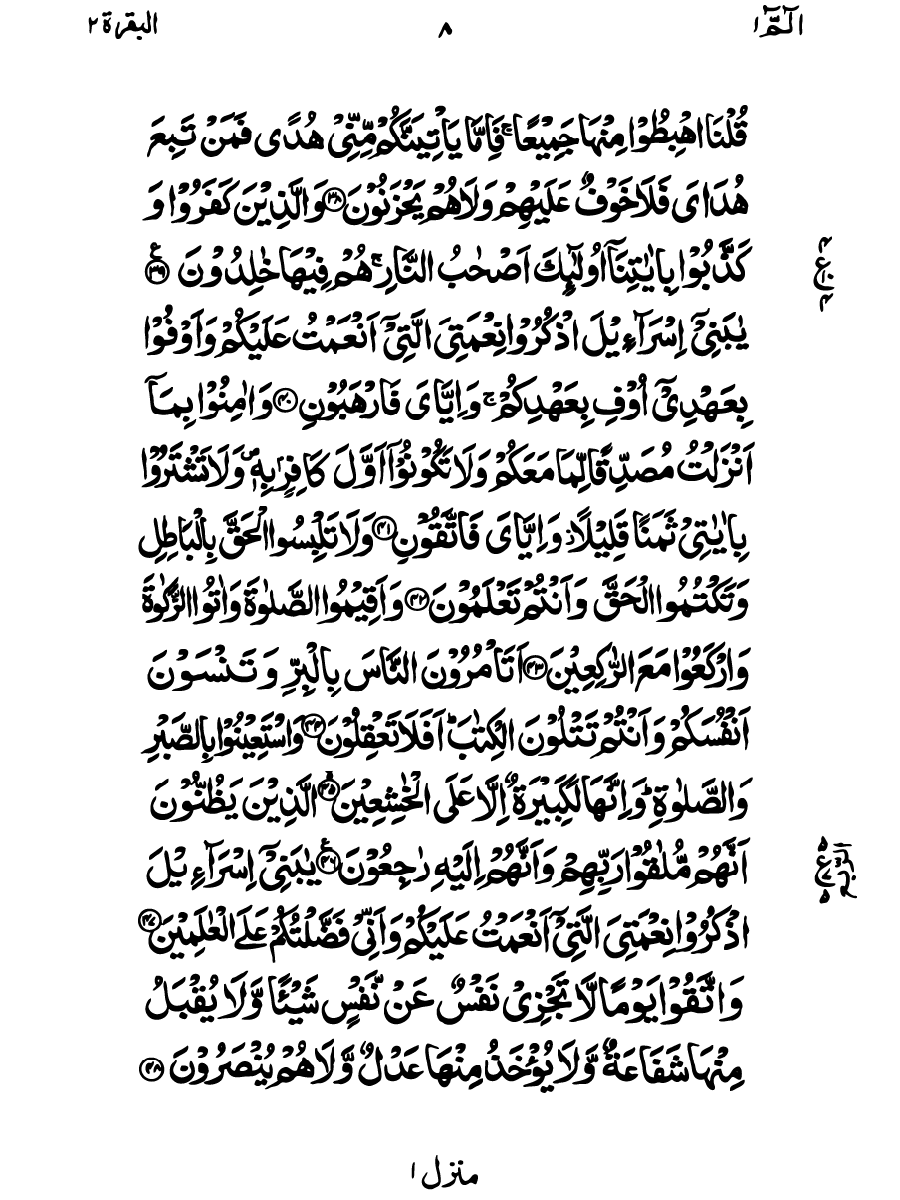 الٓمّٓ ۱ ۸ البقرة ۲
قُلْنَا اهْبِطُوْا مِنْهَا جَمِيْعًا ۚ فَاِمَّا يَاْتِيَنَّكُمْ مِّنِّىْ هُدًى فَمَنْ تَبِعَ
هُدَاىَ فَلَا خَوْفٌ عَلَيْهِمْ وَلَا هُمْ يَحْزَنُوْنَ ۝۳۸ وَالَّذِيْنَ كَفَرُوْا وَ
كَذَّبُوْا بِاٰيٰتِنَآ اُولٰٓئِكَ اَصْحٰبُ النَّارِ ۚ هُمْ فِيْهَا خٰلِدُوْنَ ۝۳۹ ع
يٰبَنِىْٓ اِسْرَآءِيْلَ اذْكُرُوْا نِعْمَتِىَ الَّتِىْٓ اَنْعَمْتُ عَلَيْكُمْ وَاَوْفُوْا
بِعَهْدِىْٓ اُوْفِ بِعَهْدِكُمْ ۚ وَاِيَّاىَ فَارْهَبُوْنِ ۝۴۰ وَاٰمِنُوْا بِمَآ
اَنْزَلْتُ مُصَدِّقًا لِّمَا مَعَكُمْ وَلَا تَكُوْنُوْٓا اَوَّلَ كَافِرٍۭ بِهٖ ۪ وَلَا تَشْتَرُوْا
بِاٰيٰتِىْ ثَمَنًا قَلِيْلًا ۡ وَاِيَّاىَ فَاتَّقُوْنِ ۝۴۱ وَلَا تَلْبِسُوا الْحَقَّ بِالْبَاطِلِ
وَتَكْتُمُوا الْحَقَّ وَاَنْتُمْ تَعْلَمُوْنَ ۝۴۲ وَاَقِيْمُوا الصَّلٰوةَ وَاٰتُوا الزَّكٰوةَ
وَارْكَعُوْا مَعَ الرّٰكِعِيْنَ ۝۴۳ اَتَاْمُرُوْنَ النَّاسَ بِالْبِرِّ وَتَنْسَوْنَ
اَنْفُسَكُمْ وَاَنْتُمْ تَتْلُوْنَ الْكِتٰبَ ؕ اَفَلَا تَعْقِلُوْنَ ۝۴۴ وَاسْتَعِيْنُوْا بِالصَّبْرِ
وَالصَّلٰوةِ ؕ وَاِنَّهَا لَكَبِيْرَةٌ اِلَّا عَلَى الْخٰشِعِيْنَ ۝۴۵ الَّذِيْنَ يَظُنُّوْنَ
اَنَّهُمْ مُّلٰقُوْا رَبِّهِمْ وَاَنَّهُمْ اِلَيْهِ رٰجِعُوْنَ ۝۴۶ ع يٰبَنِىْٓ اِسْرَآءِيْلَ
اذْكُرُوْا نِعْمَتِىَ الَّتِىْٓ اَنْعَمْتُ عَلَيْكُمْ وَاَنِّىْ فَضَّلْتُكُمْ عَلَى الْعٰلَمِيْنَ ۝۴۷
وَاتَّقُوْا يَوْمًا لَّا تَجْزِىْ نَفْسٌ عَنْ نَّفْسٍ شَيْئًا وَّلَا يُقْبَلُ
مِنْهَا شَفَاعَةٌ وَّلَا يُؤْخَذُ مِنْهَا عَدْلٌ وَّلَا هُمْ يُنْصَرُوْنَ ۝۴۸
منزل ۱